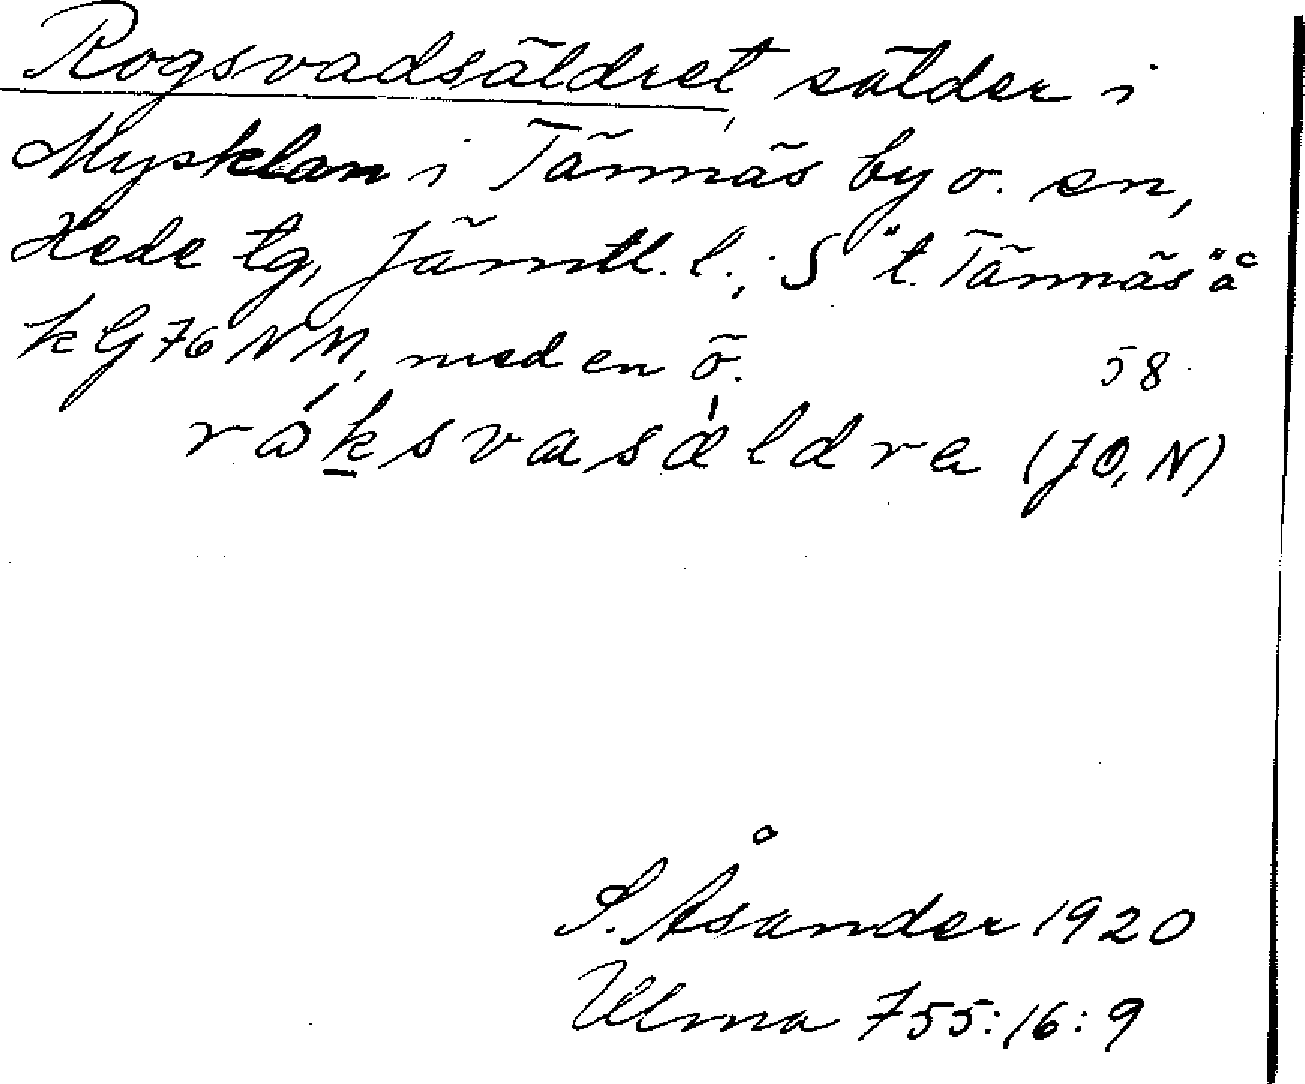 Rogsvadsäldret, sälder i
Mysklan i Tännäs by o. sn,
Hede tg, Jämtl. l.; S "t. Tännäs" å
k G 76 NM, med en ö. 58
råksvasældra (JO, N)
S. Åsander 1920
Ulma 755:16:9